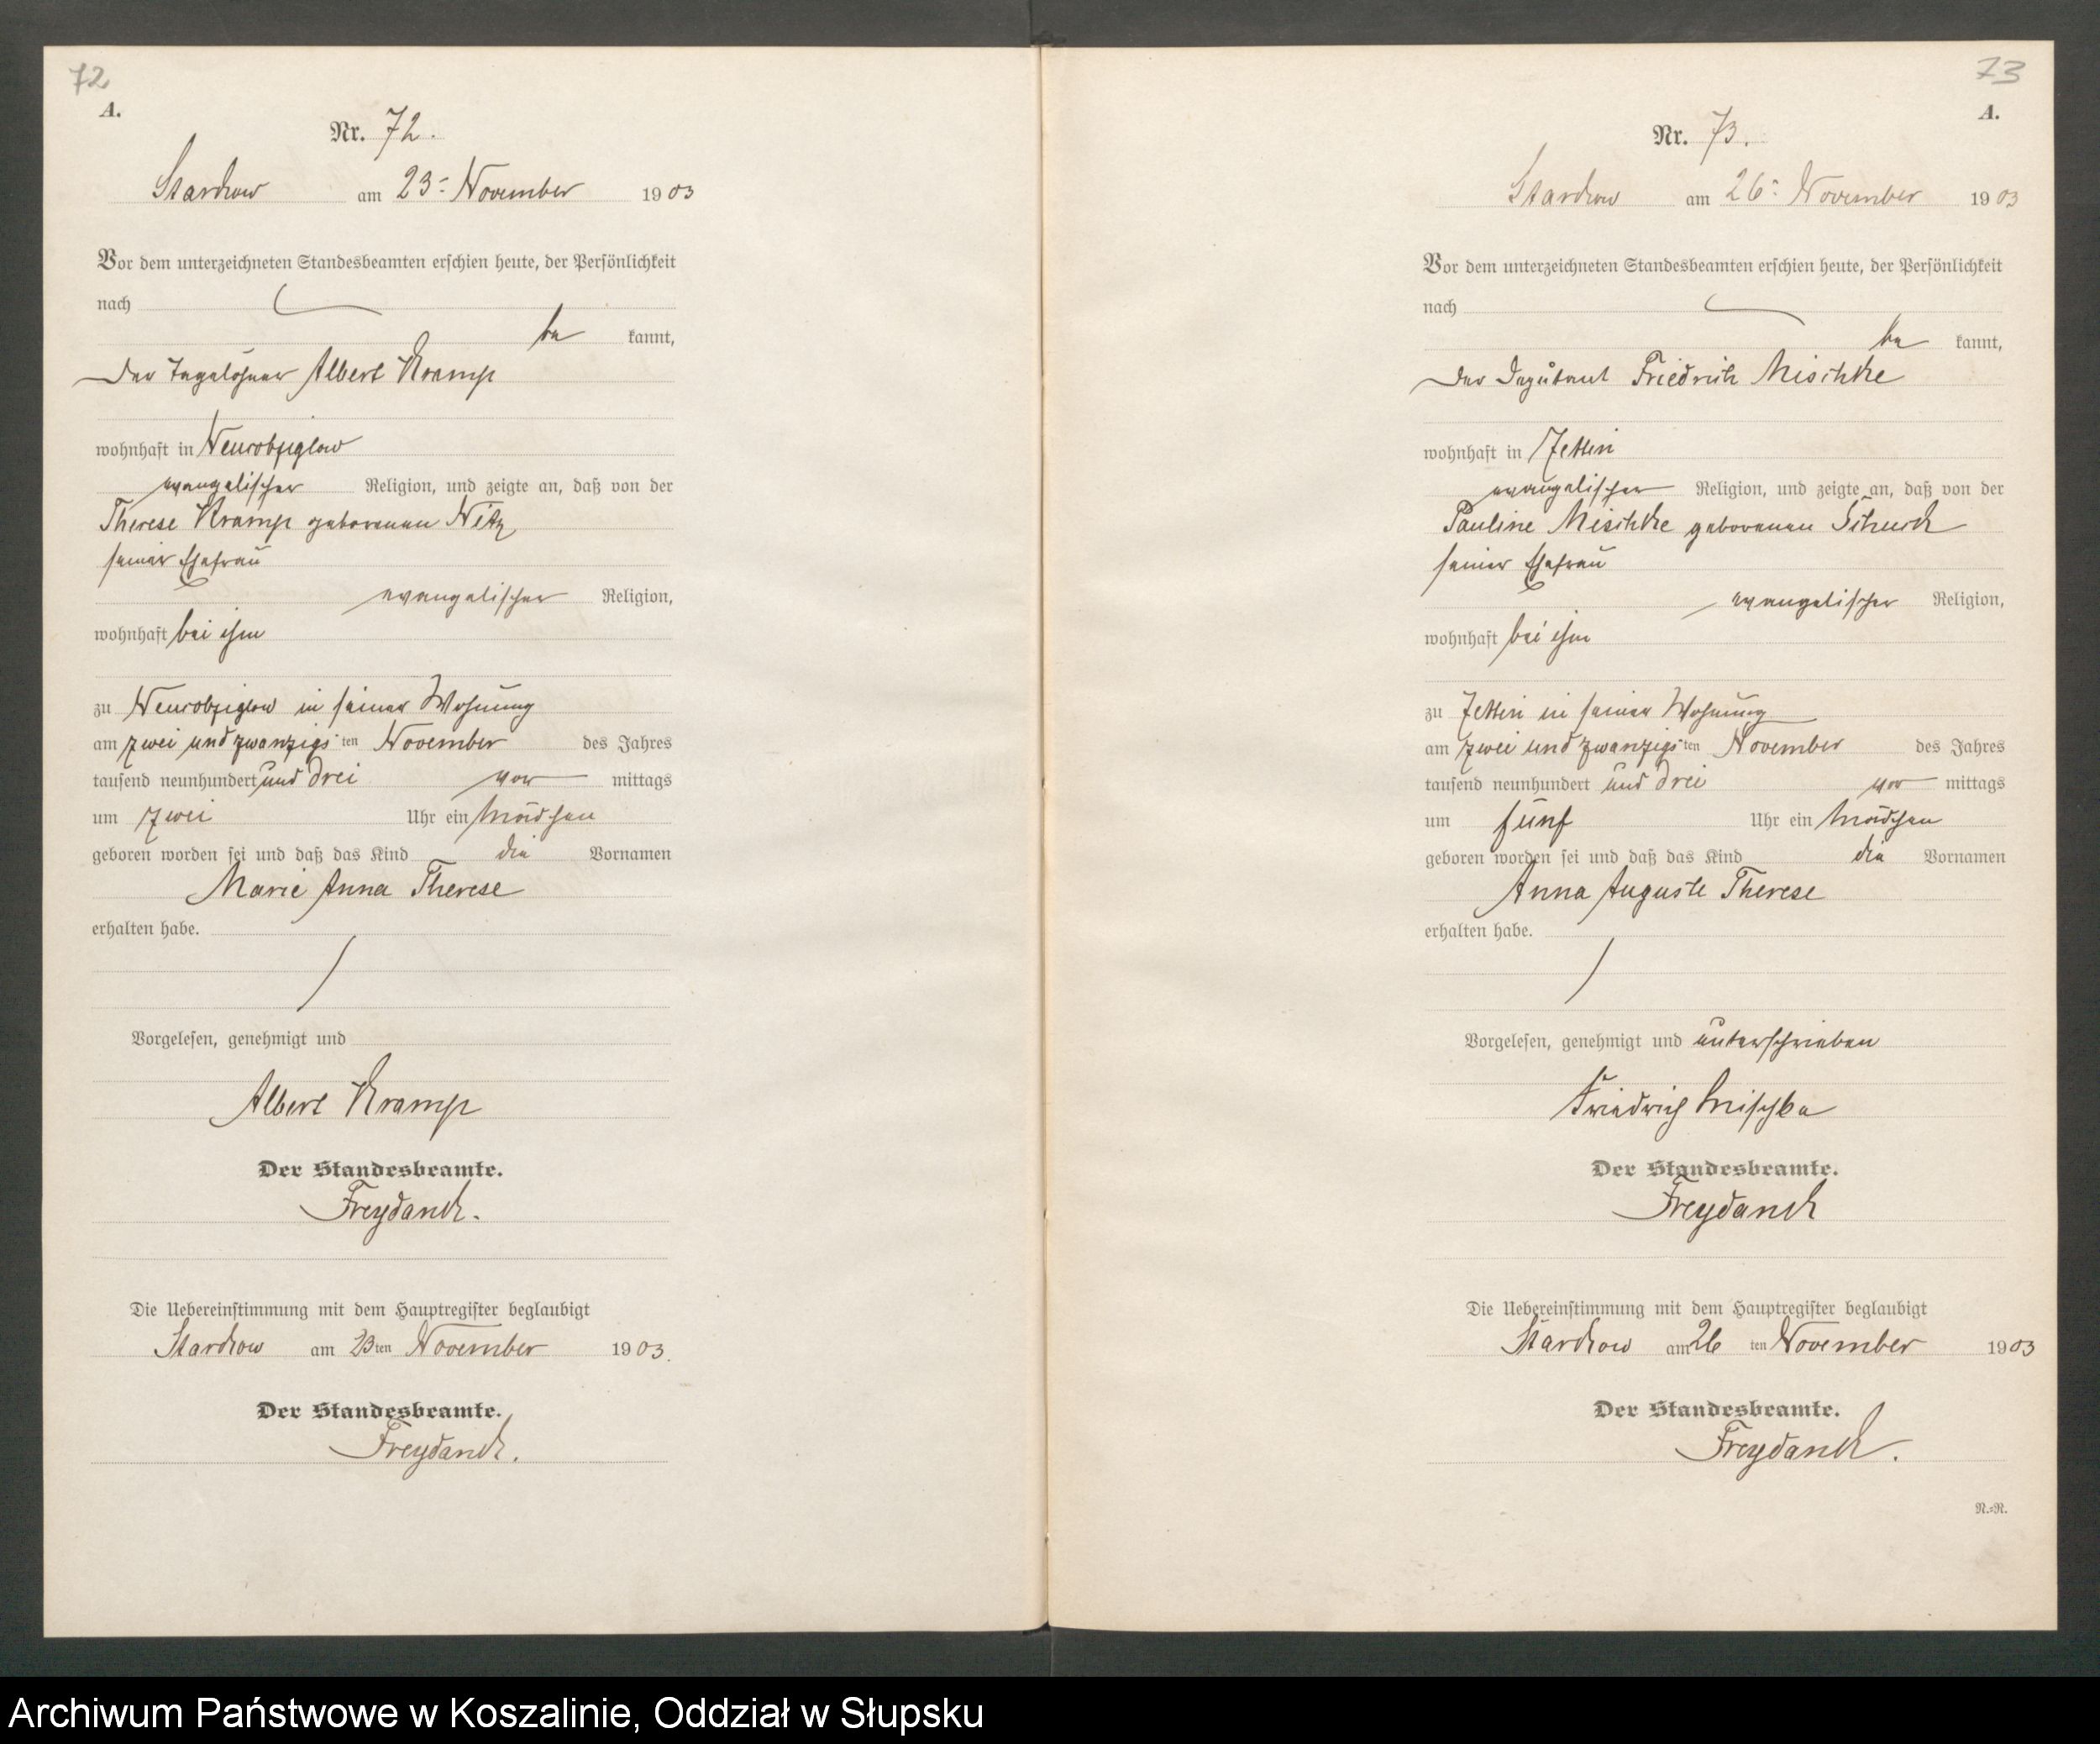 72
A.
Nr. 72.
Starkow am 23ᵗ November 1903
Vor dem unterzeichneten Standesbeamten erschien heute, der Persönlichkeit
nach
be kannt,
Der Tagelöhner Albert Kramp
wohnhaft in Neurobziglow
evangelischer Religion, und zeigte an, daß von der
Therese Kramp geborenen Nitz,
seiner Ehefrau
evangelischer Religion,
wohnhaft bei ihm
zu Neurobziglow in seiner Wohnung
am zwei und zwanzigs ten November des Jahres
tausend neunhundert und drei vor mittags
um zwei Uhr ein Mädchen
geboren worden sei und daß das Kind die Vornamen
Marie Anna Therese
erhalten habe.
Vorgelesen, genehmigt und
Albert Kramp
Der Standesbeamte.
Freydanck.
Die Uebereinstimmung mit dem Hauptregister beglaubigt
Starkow am 23ten November 1903.
Der Standesbeamte.
Freydanck.
73
A.
Nr. 73.
Starkow am 26ᵗ November 1903
Vor dem unterzeichneten Standesbeamten erschien heute, der Persönlichkeit
nach
be kannt,
Der Deputant Friedrich Mischke
wohnhaft in Zettin
evangelischer Religion, und zeigte an, daß von der
Pauline Mischke geborenen
seiner Ehefrau
evangelischer Religion,
wohnhaft bei ihm
zu Zettin in seiner Wohnung
am zwei und zwanzigs ten November des Jahres
tausend neunhundert und drei vor mittags
um fünf Uhr ein Mädchen
geboren worden sei und daß das Kind die Vornamen
Anna Auguste Therese
erhalten habe.
Vorgelesen, genehmigt und unterschrieben
Friedrich Mischke
Der Standesbeamte.
Freydanck
Die Uebereinstimmung mit dem Hauptregister beglaubigt
Starkow am 26 ten November 1903
Der Standesbeamte.
Freydanck.
N.=N.
Archiwum Państwowe w Koszalinie, Oddział w Słupsku